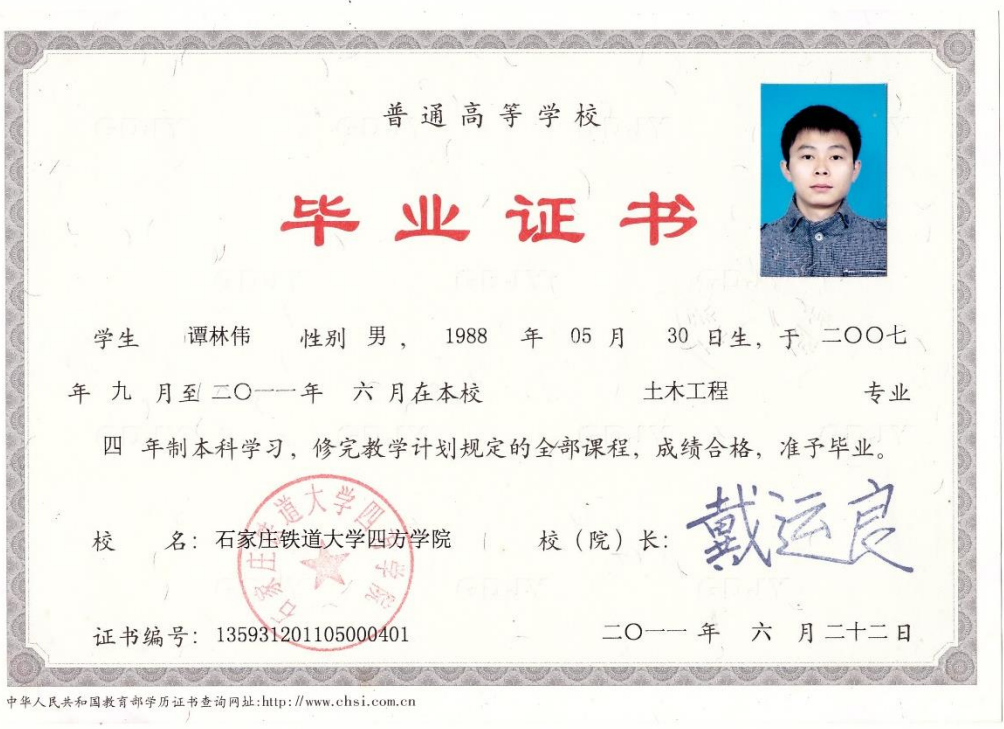 普通高等学校
毕业证书
学生 谭林伟 性别 男 ， 1988 年 05 月 30 日生，于 二〇〇七
年 九 月至 二〇一一 年 六 月在本校 土木工程 专业
四 年制本科学习，修完教学计划规定的全部课程，成绩合格，准予毕业。
石家庄铁道大学四方学院
校 名：石家庄铁道大学四方学院 校（院）长：戴运良
证书编号：135931201105000401 二〇一一 年 六 月二十二日
中华人民共和国教育部学历证书查询网址:http://www.chsi.com.cn